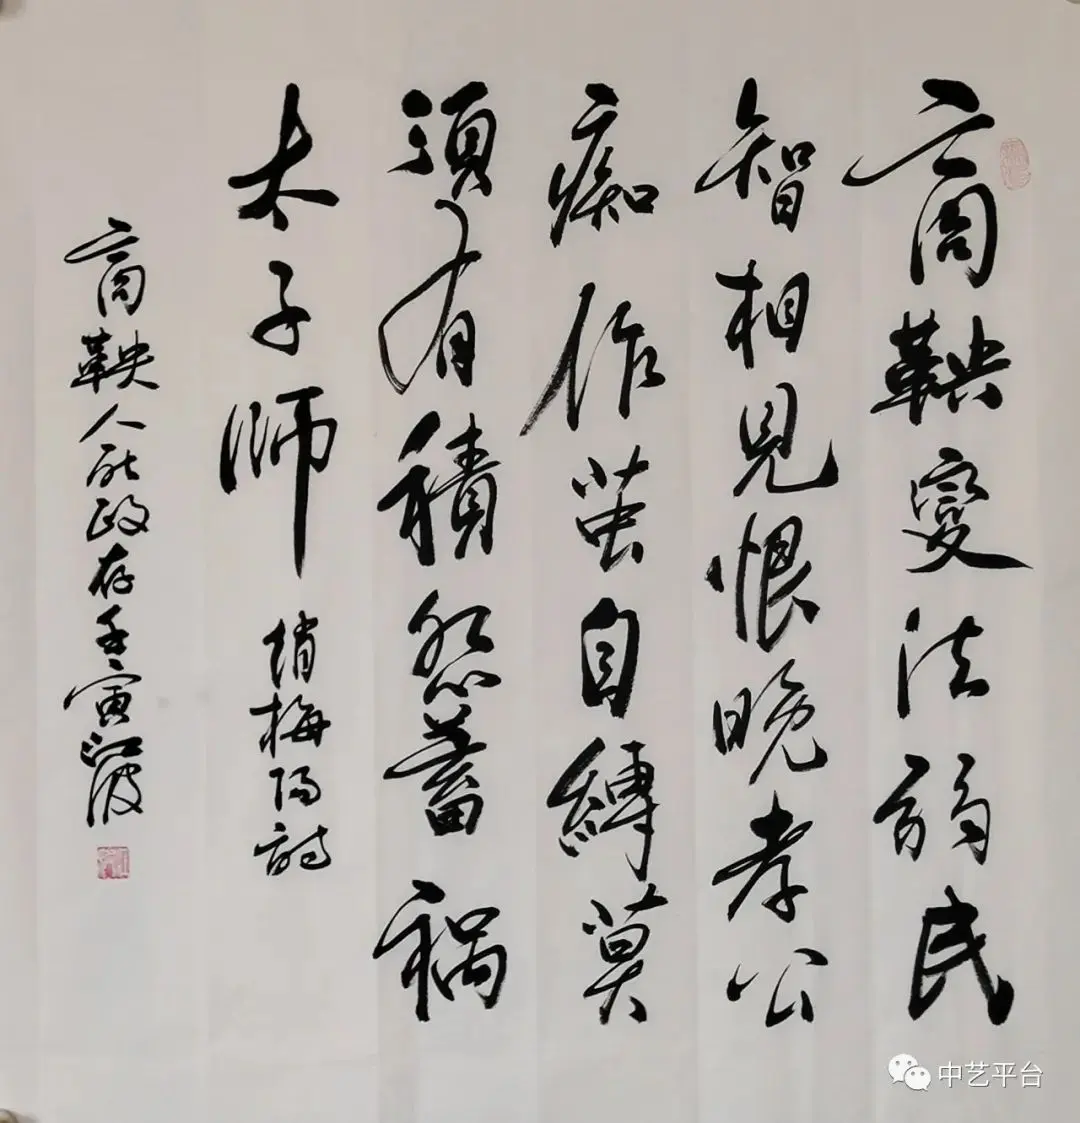 商鞅變法弱民
智相見恨晚孝公
痴作茧自縛莫
須有積怨蓄祸
太子師 梅阳詩
商鞅人死政存壬寅江波
中艺平台